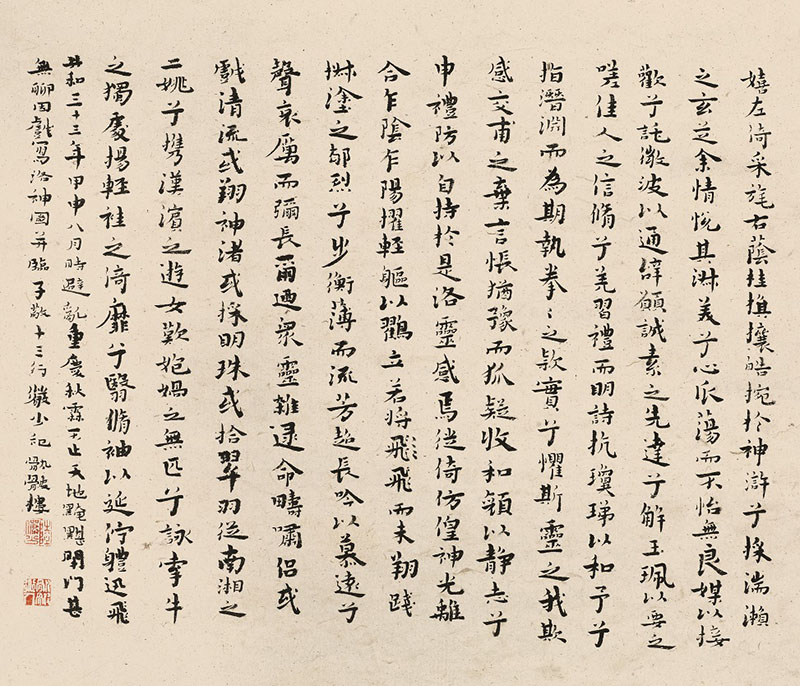 嬉左倚采旄右蔭桂旗攘皓捥於神滸兮採湍瀨
之玄芝余情悅其淑美兮心振蕩而不怡無良媒以接
歡兮託微波以通辭願誠素之先達兮解玉珮以要之
嗟佳人之信脩兮羌習禮而明詩抗瓊珶以和予兮
指潛淵而為期執拳〻之欵實兮懼斯靈之我欺
感交甫之棄言悵猶豫而狐疑收和顏以靜志兮
申禮防以自持於是洛靈感焉徙倚仿偟神光離
合乍陰乍陽擢輕軀以鶴立若將飛而未翔踐
椒塗之郁烈兮步衡薄而流芳超長吟以慕遠兮
聲哀厲而彌長爾迺衆靈雜遝命疇嘯侶或
戲清流或翔神渚或採明珠或拾翠羽從南湘之
二姚兮攜漢濱之遊女歎匏媧之無匹兮詠牽牛
之獨處揚輕袿之倚靡兮翳脩袖以延佇體迅飛
共和三十三年甲申八月時避亂重慶秋霖不止天地黤黮閉門甚
無聊因戲寫洛神圖并臨子敬十三行 徵少記